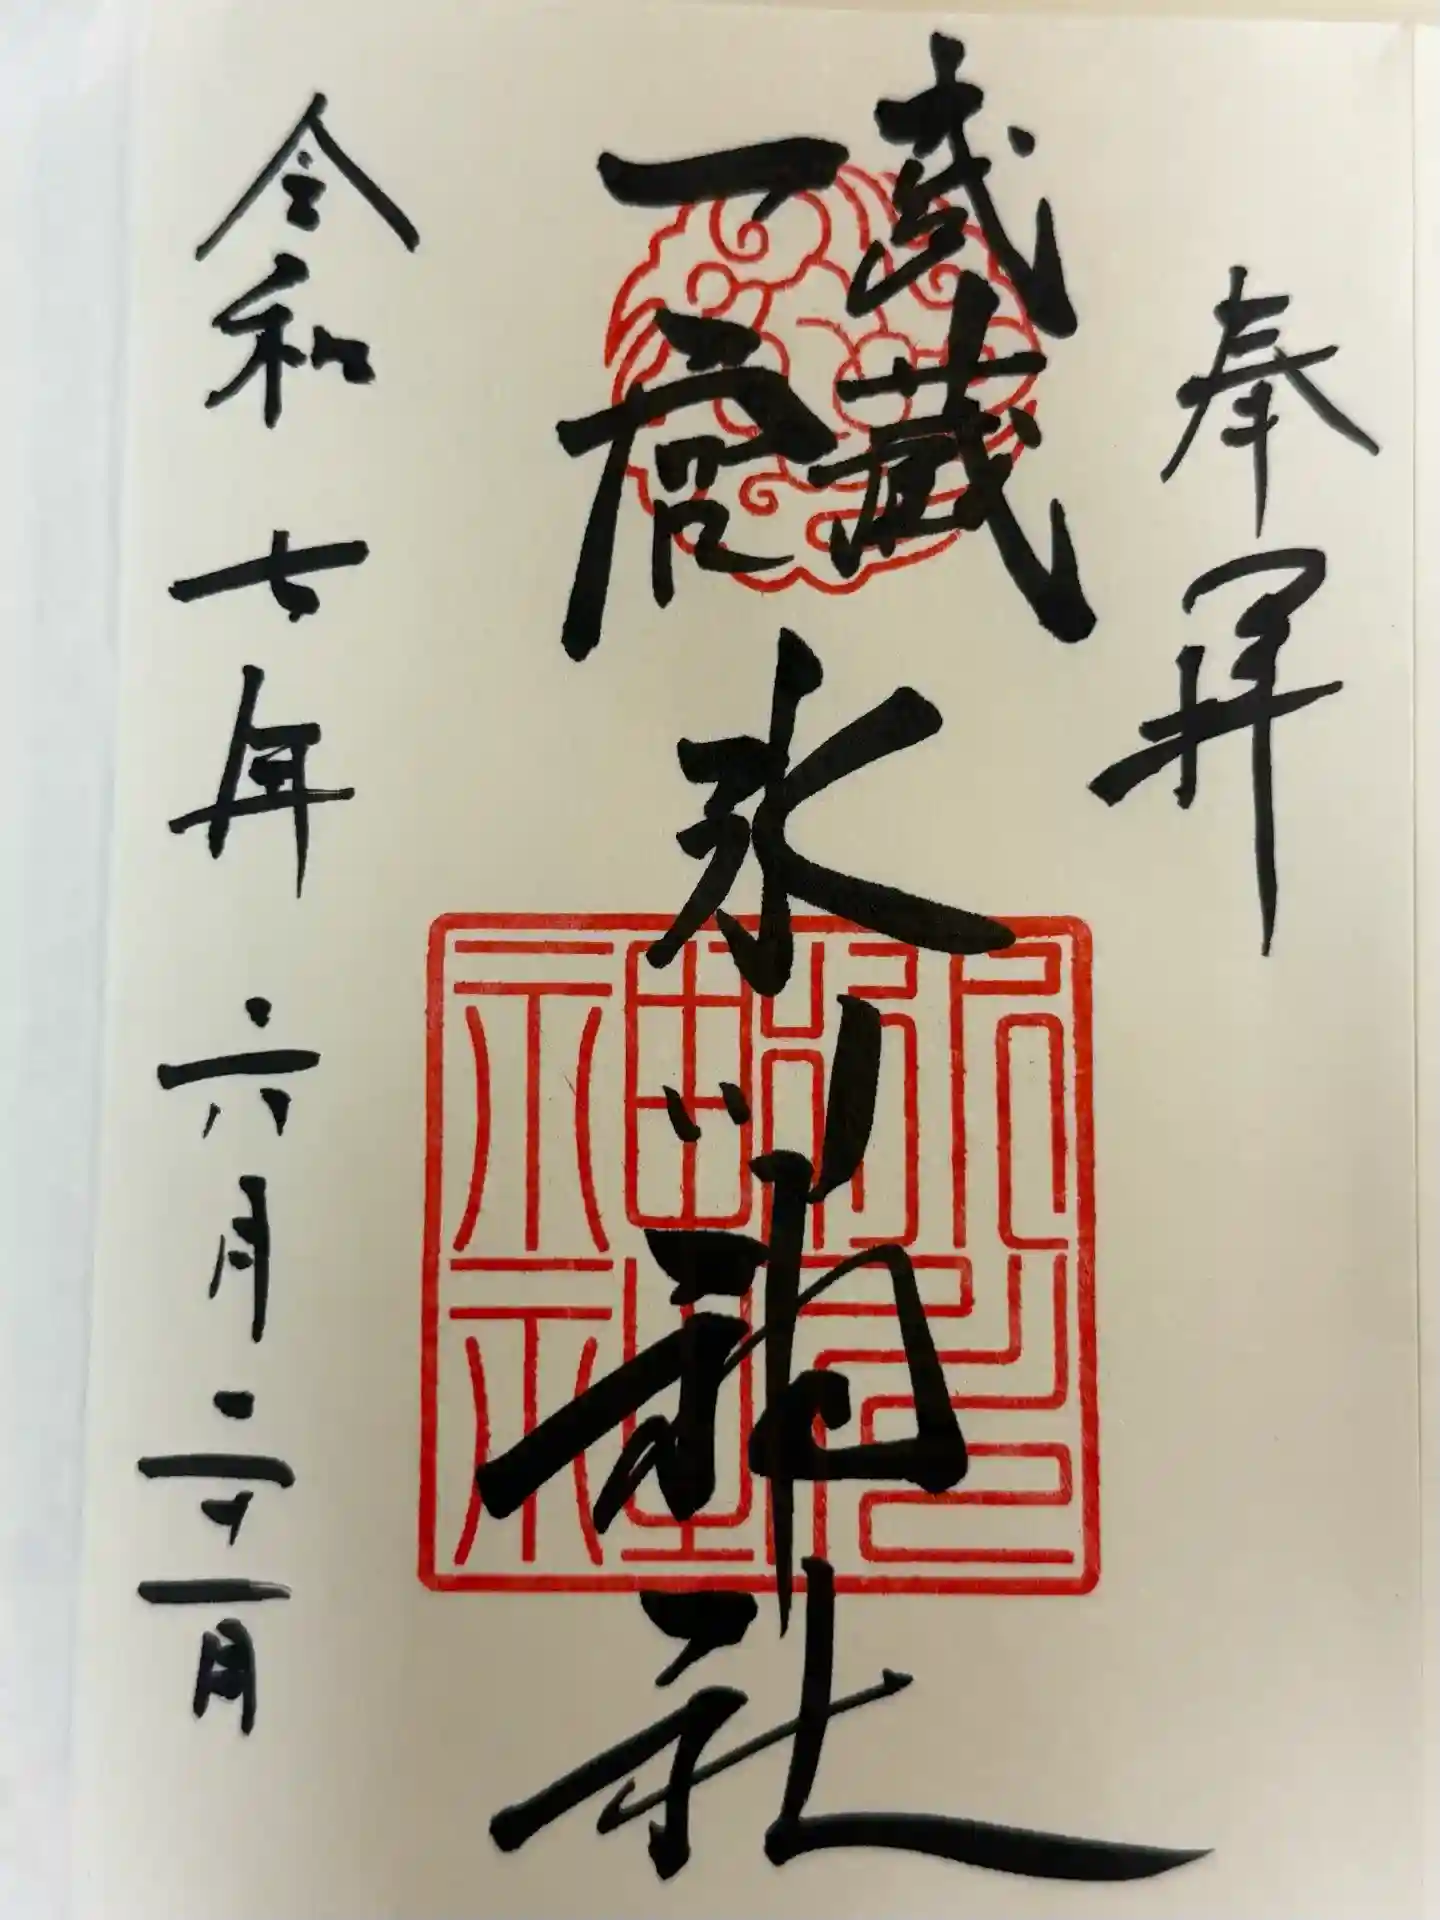 奉拝
武蔵
一宮
氷川神社
冰川
神社
令和七年六月二十一日